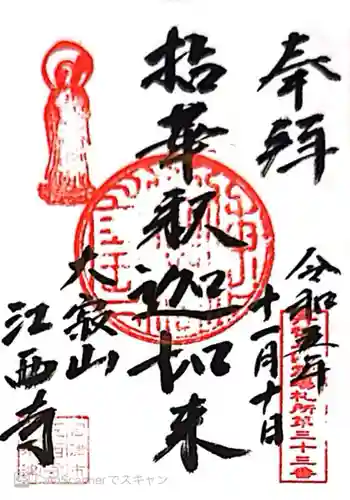 奉拝
令和五年
十一月十日
札所第三十三番
拈華釈迦如来
大寂山
江西寺
CamScannerでスキャン